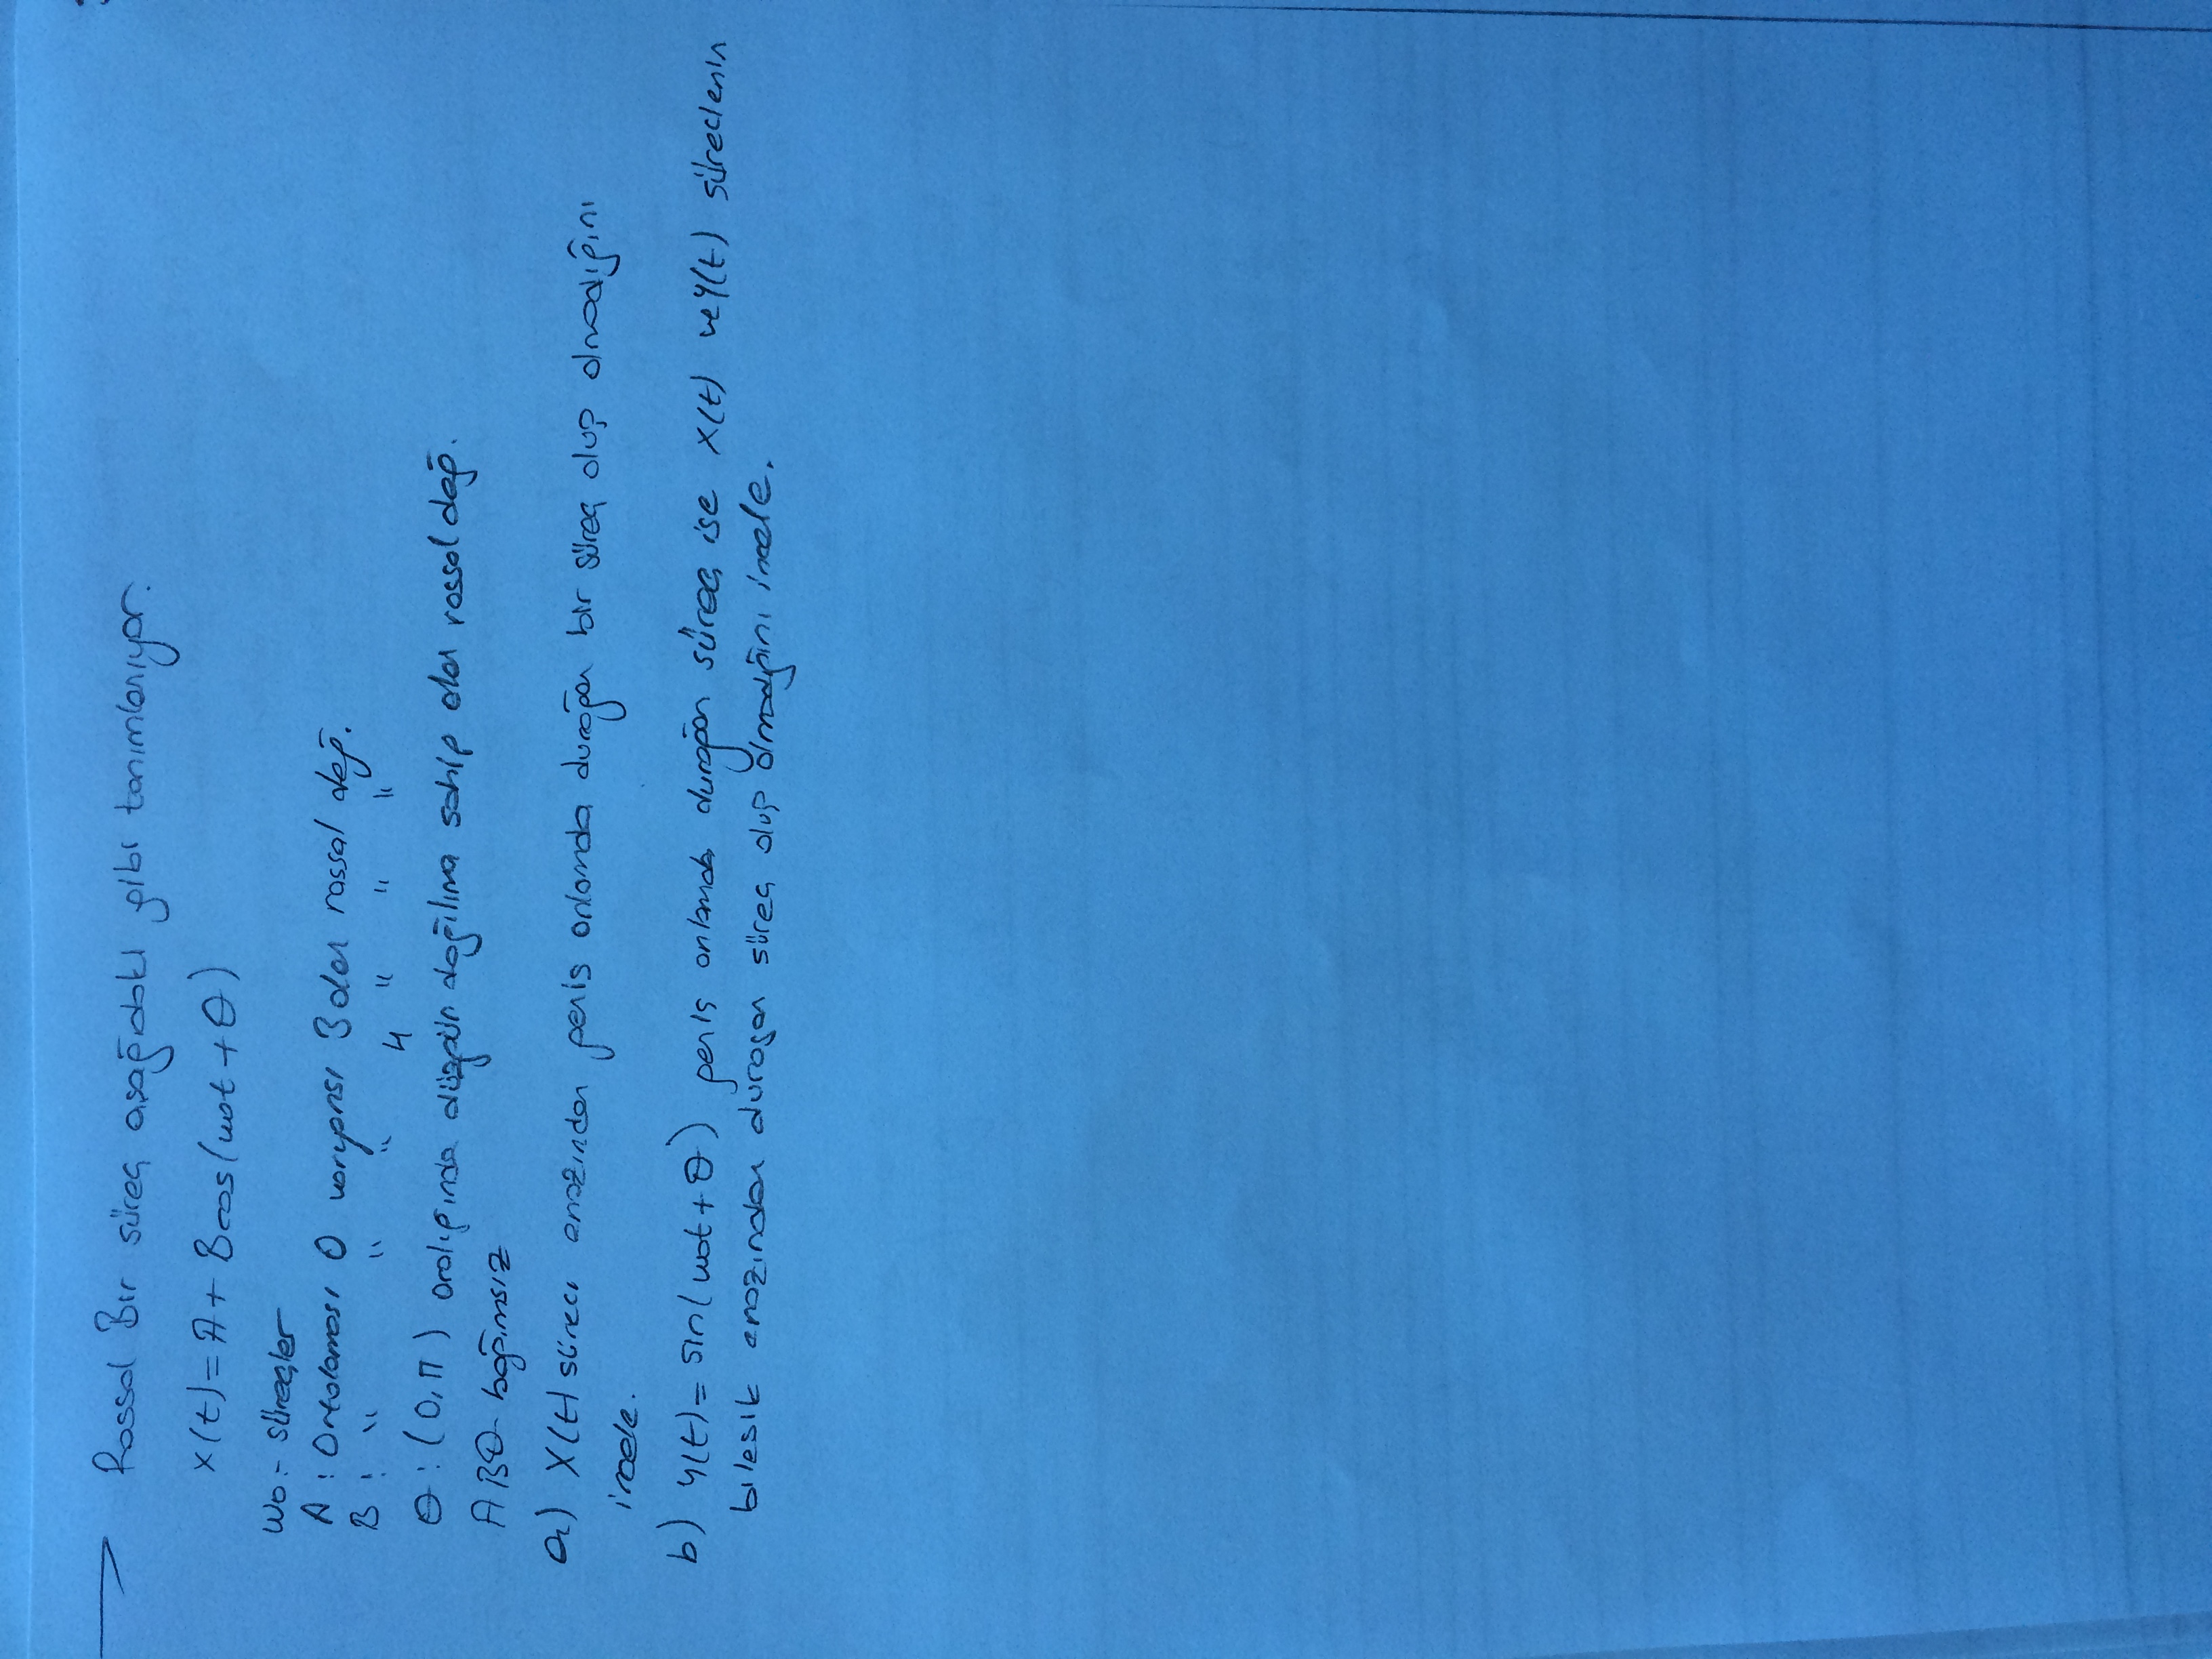 Rassal Bir süreç aşağıdaki gibi tanımlanıyor.
x(t)=A+Bcos(wot+θ)
wo:- süreçler
A : Ortalaması 0 varyansı 3 olan rassal değ.
B : " " " 4 " " "
θ : (0,π) aralığında düzgün dağılıma sahip olan rassal değ.
ABθ- bağımsız
a) X(t) süreci enazından geniş anlamda durağan bir süreç olup olmadığını
incele.
b) y(t)=sin(wot+θ) geniş anlamda durağan süreç ise x(t) ve y(t) süreclerin
bilesik enazından durağan süreç olup olmadığını incele.